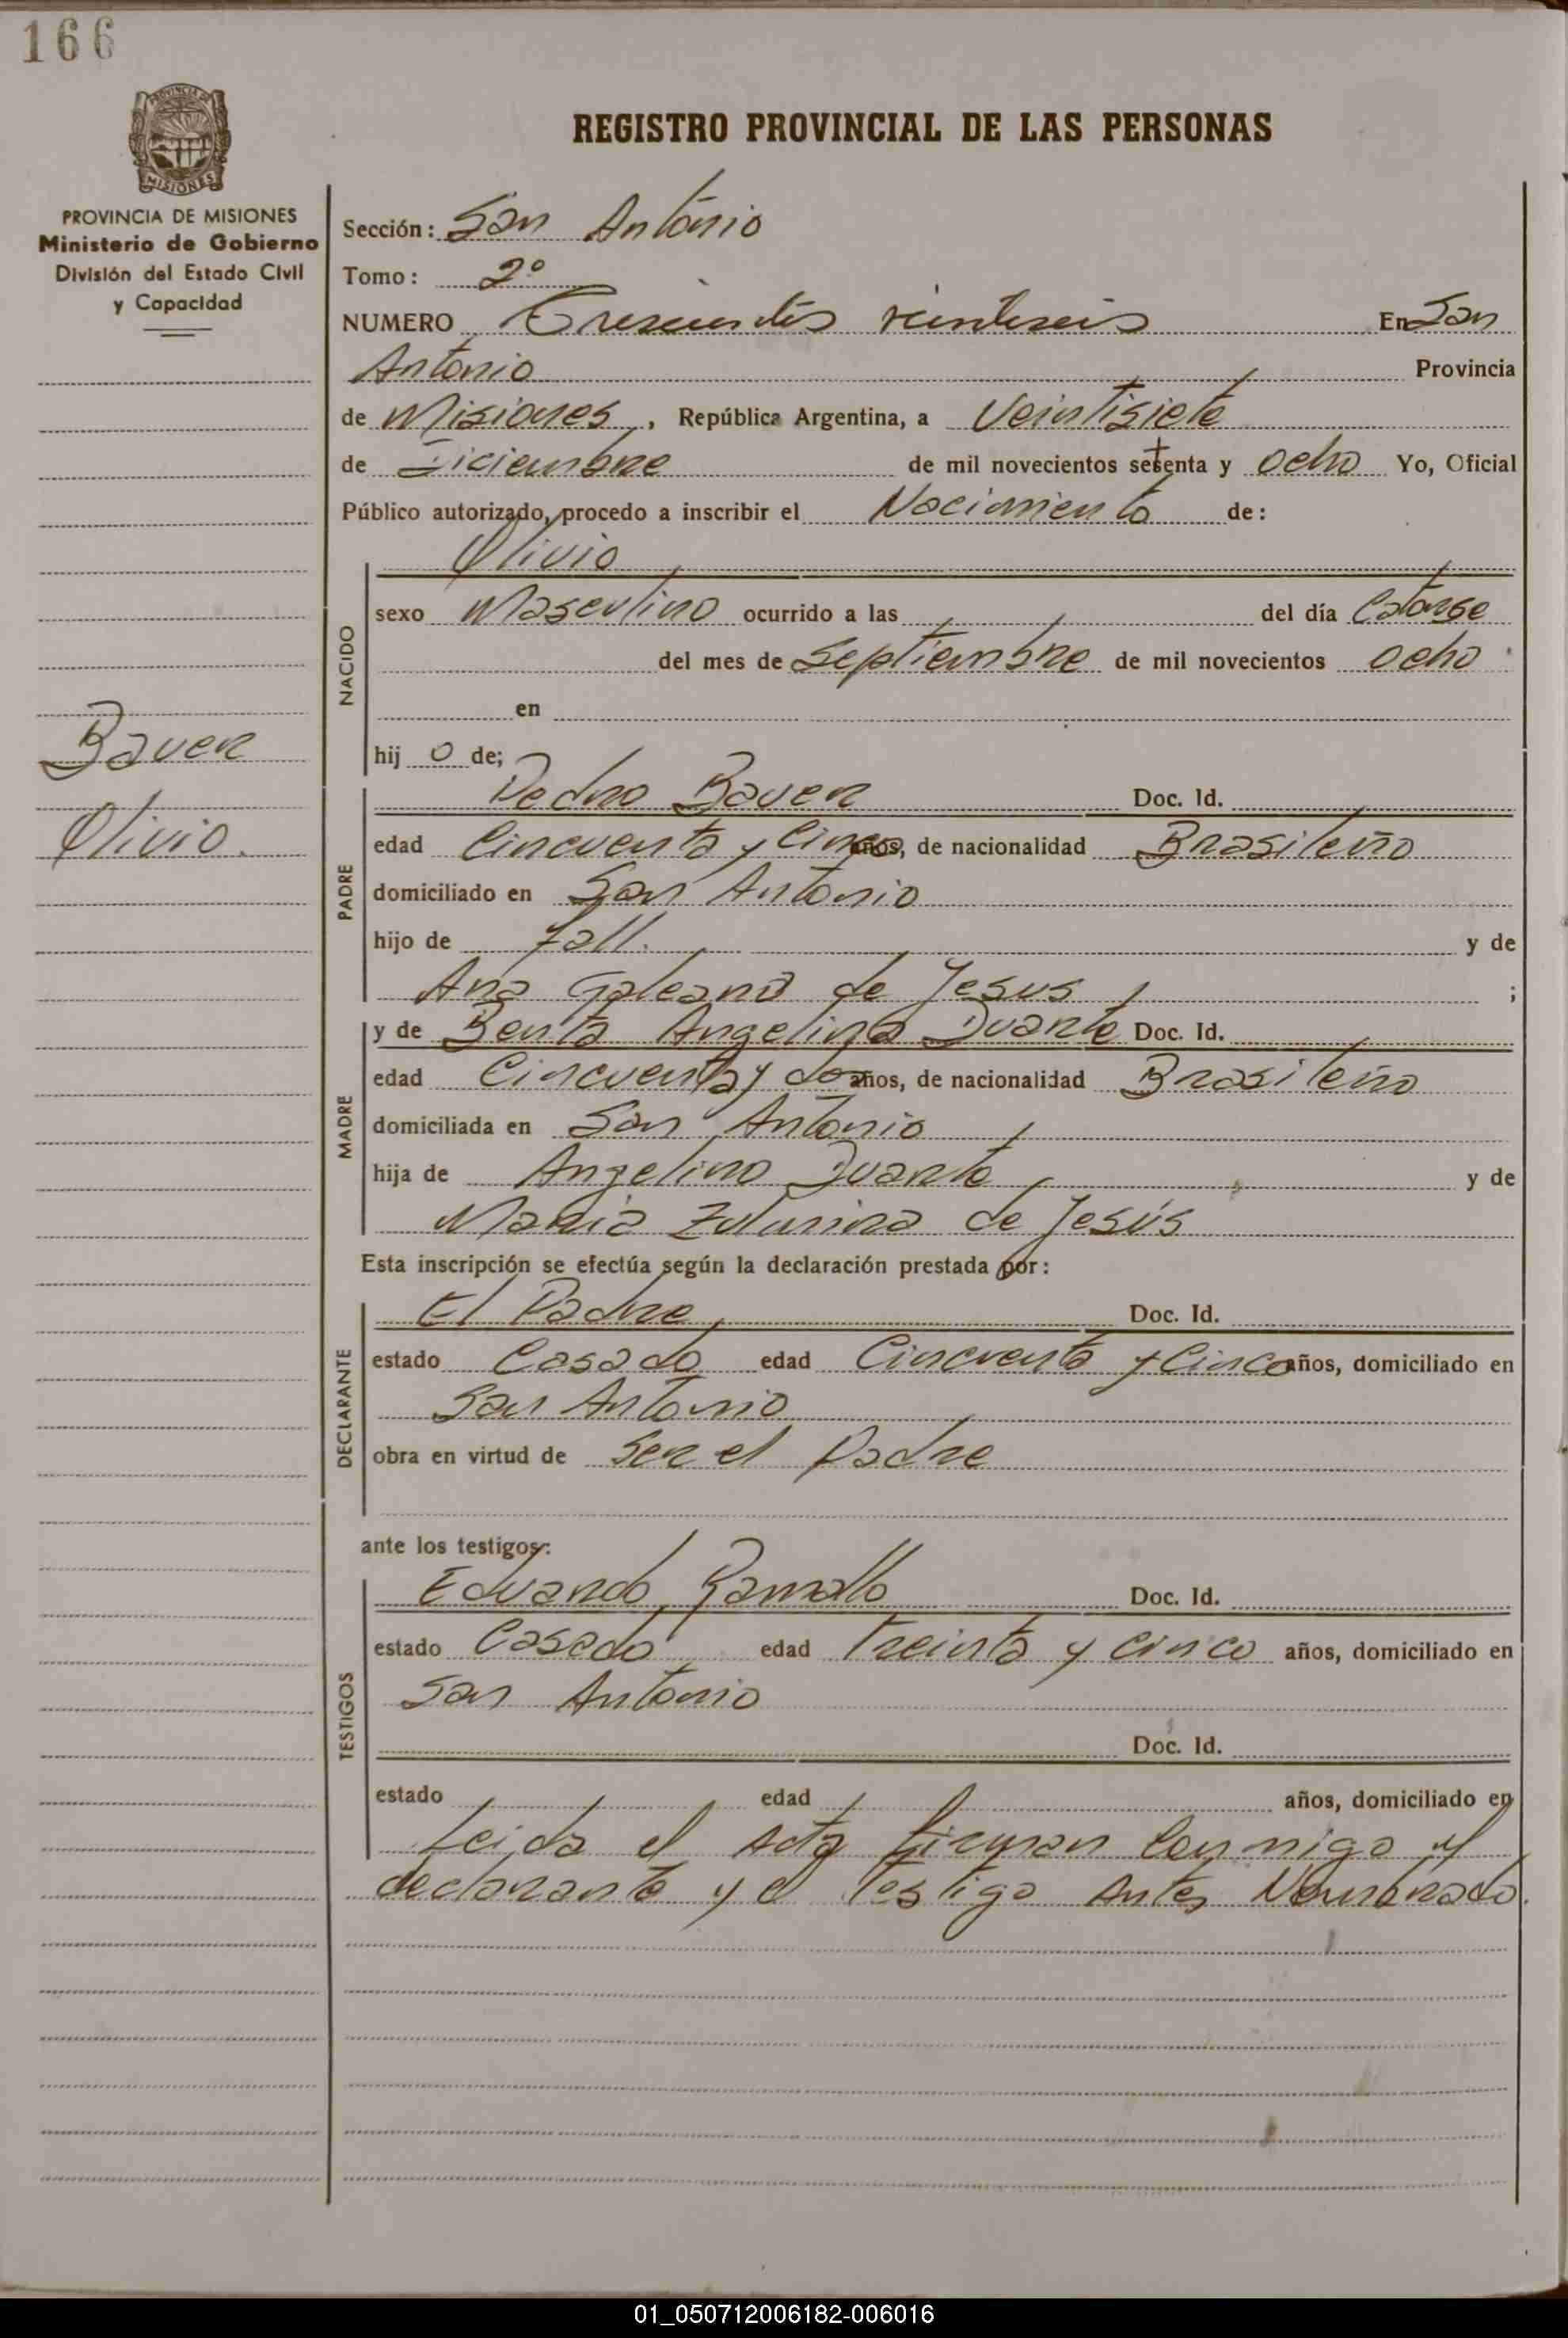 166
PROVINCIA DE MISIONES
MISIONES
PROVINCIA DE MISIONES
Ministerio de Gobierno
División del Estado Civil
y Capacidad
REGISTRO PROVINCIAL DE LAS PERSONAS
Sección: San Antonio
Tomo: 2º
NUMERO Trescientos veintiseis En San
Antonio Provincia
de Misiones, República Argentina, a Veintisiete
de Diciembre de mil novecientos setenta y ocho Yo, Oficial
Público autorizado, procedo a inscribir el Nacimiento de:
Olivio
NACIDO
sexo Masculino ocurrido a las del día Catorse
del mes de Septiembre de mil novecientos ocho
en
hij o de;
Bauer
Olivio.
PADRE
Pedro Bauer Doc. Id.
edad Cincuenta y Cinco años, de nacionalidad Brasileño
domiciliado en San Antonio
hijo de fall. y de
Ana Galeana de Jesus ;
MADRE
y de Benta Angelina Duarte Doc. Id.
edad Cincuenta y dos años, de nacionalidad Brasileño
domiciliada en San Antonio
hija de Angelino Duarte y de
Maria de Jesús
Esta inscripción se efectúa según la declaración prestada por:
DECLARANTE
El Padre Doc. Id.
estado Casado edad Cincuenta y Cinco años, domiciliado en
San Antonio
obra en virtud de Ser el Padre
ante los testigos:
TESTIGOS
Eduardo Ramallo Doc. Id.
estado Casado edad Treinta y cinco años, domiciliado en
San Antonio
Doc. Id.
estado edad años, domiciliado en
Leida el Acta firman Conmigo el
declarante y el Testigo Antes Nombrado.
01_050712006182-006016